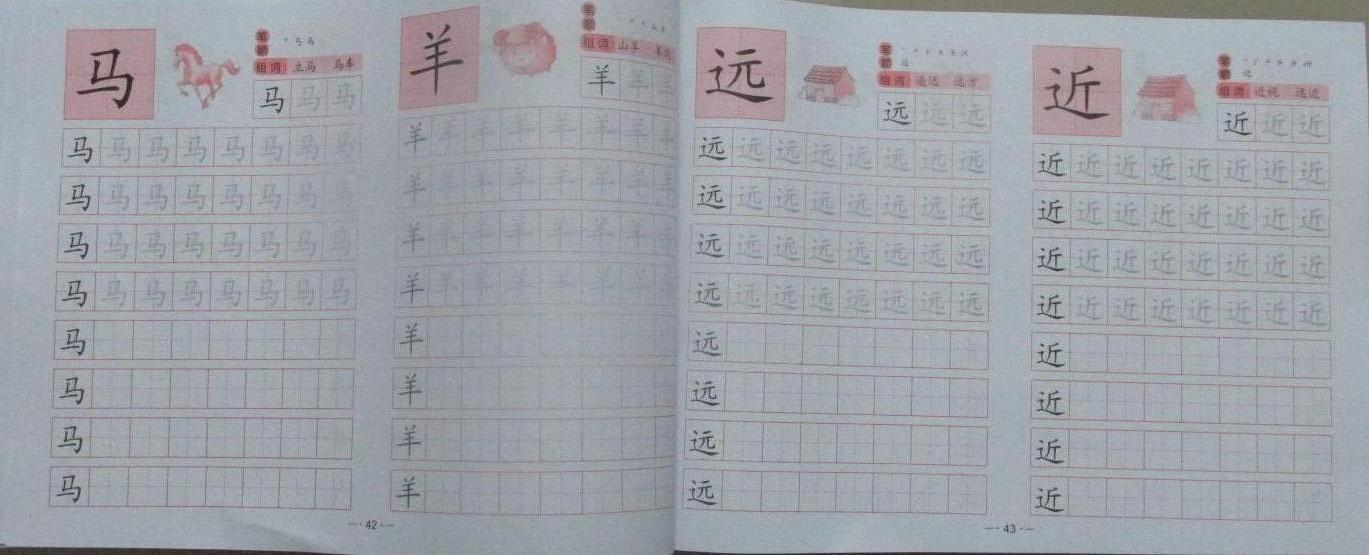 马
笔顺
组词 立马 马车
马 马 马
马 马 马 马 马 马 马 马
马 马 马 马 马 马 马
马 马 马 马 马 马 马 马
马 马 马 马 马 马 马 马
马
马
马
马
42
羊
笔顺
组词 山羊
羊 羊 羊
羊 羊 羊 羊 羊 羊 羊 羊
羊 羊 羊 羊 羊 羊 羊 羊
羊 羊 羊 羊 羊 羊 羊 羊
羊 羊 羊 羊 羊 羊 羊 羊
羊
羊
羊
羊
远
笔顺
组词 遥远 远方
远 远 远
远 远 远 远 远 远 远 远
远 远 远 远 远 远 远 远
远 远 远 远 远 远 远 远
远 远 远 远 远 远 远 远
远
远
远
远
43
近
笔顺
组词 近视 远近
近 近 近
近 近 近 近 近 近 近 近
近 近 近 近 近 近 近 近
近 近 近 近 近 近 近 近
近 近 近 近 近 近 近 近
近
近
近
近